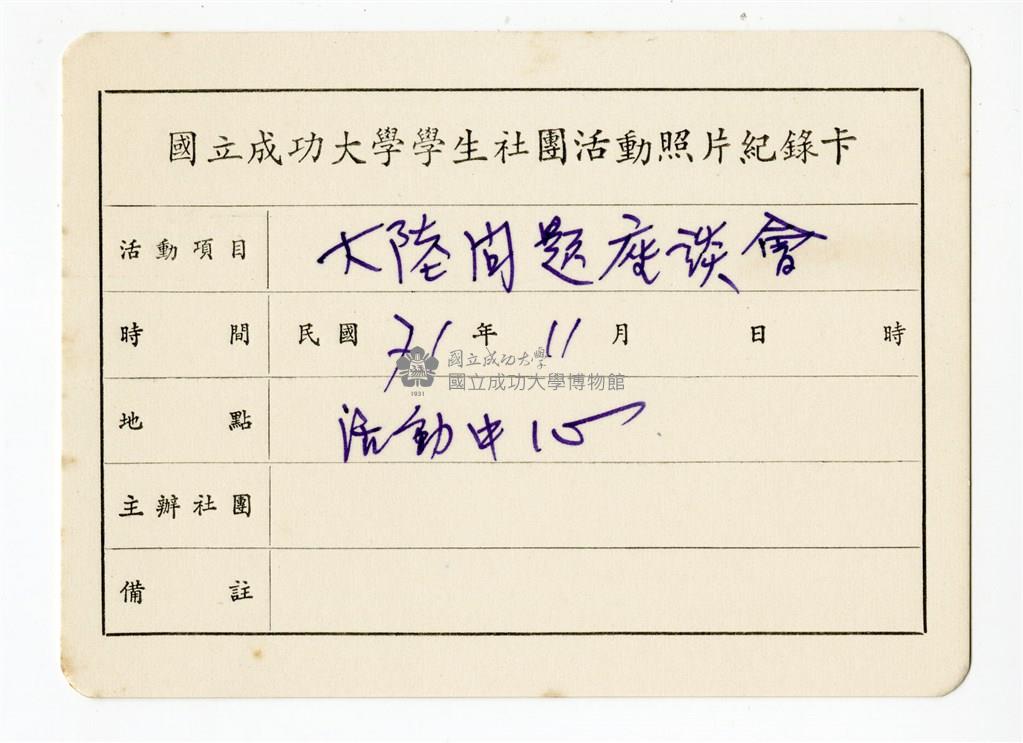 國立成功大學學生社團活動照片紀錄卡
活動項目 大陸問題座談會
時間 民國 71 年 11 月 日 時
國立成功大學
國立成功大學博物館
1931
地點 活動中心
主辦社團
備註